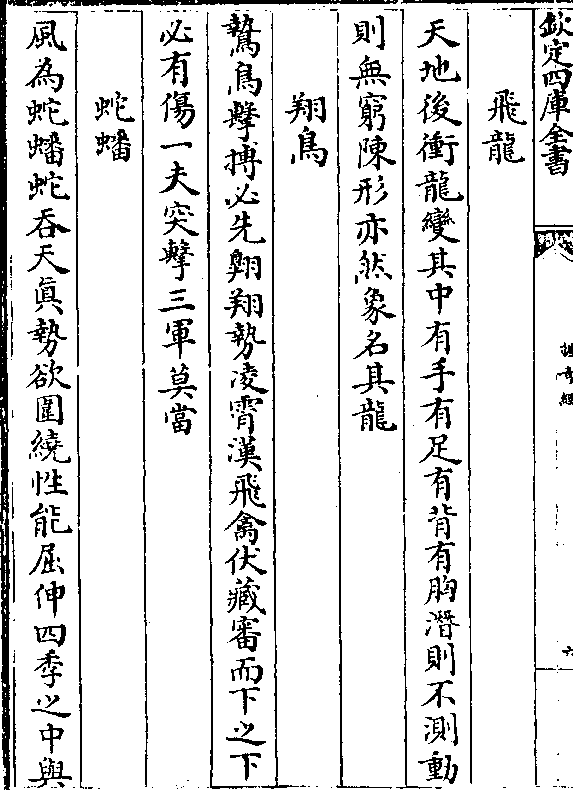 欽定四庫全書
握奇經
六
飛龍
天地後衝龍變其中有手有足有背有胸潛則不測動
則無窮陳形亦然象名其龍
翔鳥
鷙鳥擊搏必先翺翔勢凌霄漢飛禽伏藏審而下之下
必有傷一夫突擊三軍莫當
蛇蟠
風為蛇蟠蛇吞天真勢欲圍繞性能屈伸四季之中與